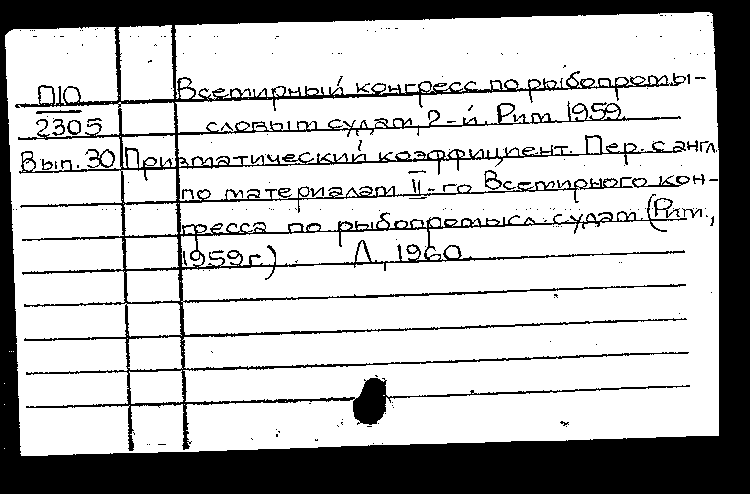 П10 Всемирный конгресс по рыбопромы-
2305 словым судам, 2-й. Рим. 1959.
Вып. 30 Призматический коэффициент. Пер. с англ.
по материалам II-го Всемирного кон-
гресса по рыбопромысл. судам (Рим,
1959г.) Л., 1960.